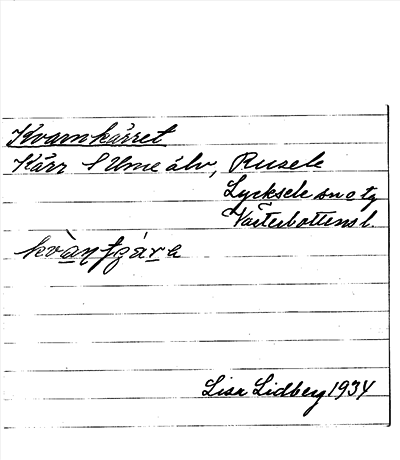 Kvarnkärret
Kärr S Ume älv, Rusele
Lycksele sn o tg
Västerbottens l.
Lisa Lidberg 1934